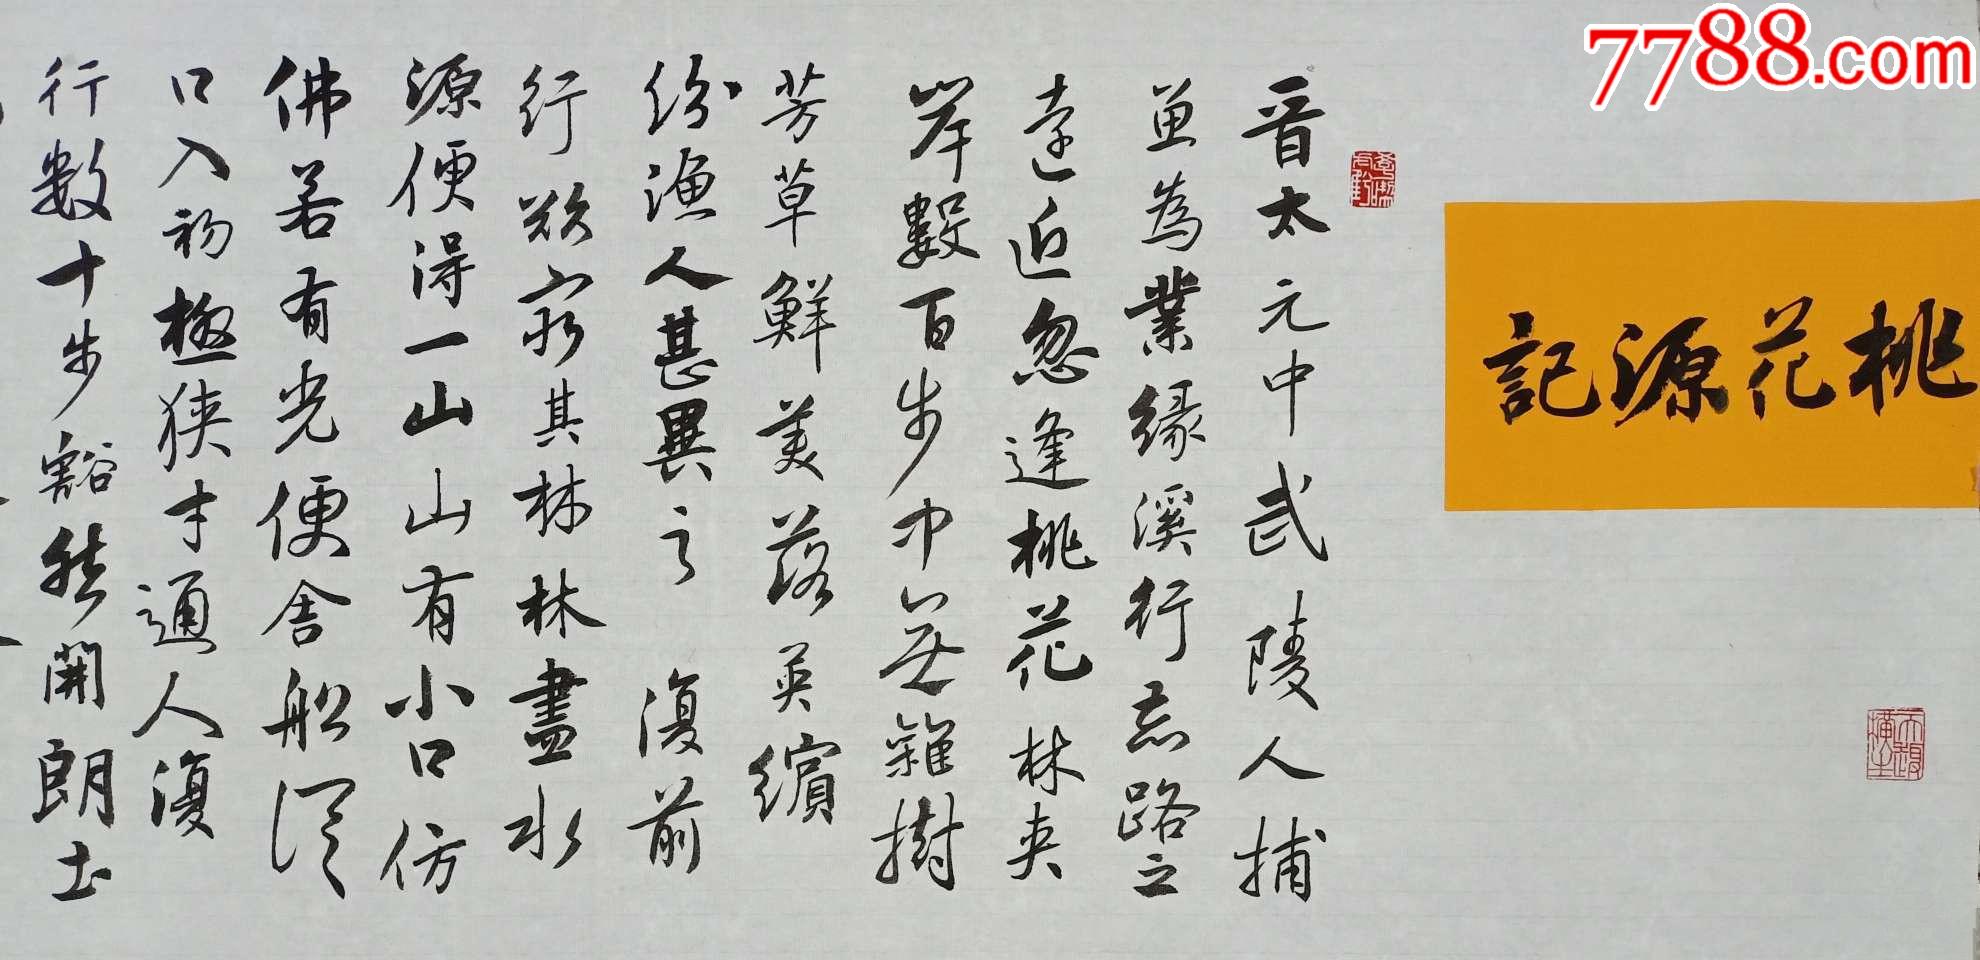 7788.com
桃花源記
晋太元中武陵人捕
魚為業緣溪行忘路之
遠近忽逢桃花林夾
岸數百步中無雜樹
芳草鮮美落英繽
紛漁人甚異之復前
行欲窮其林林盡水
源便得一山山有小口仿
佛若有光便舍船從
口入初極狹才通人復
行數十步豁然開朗土